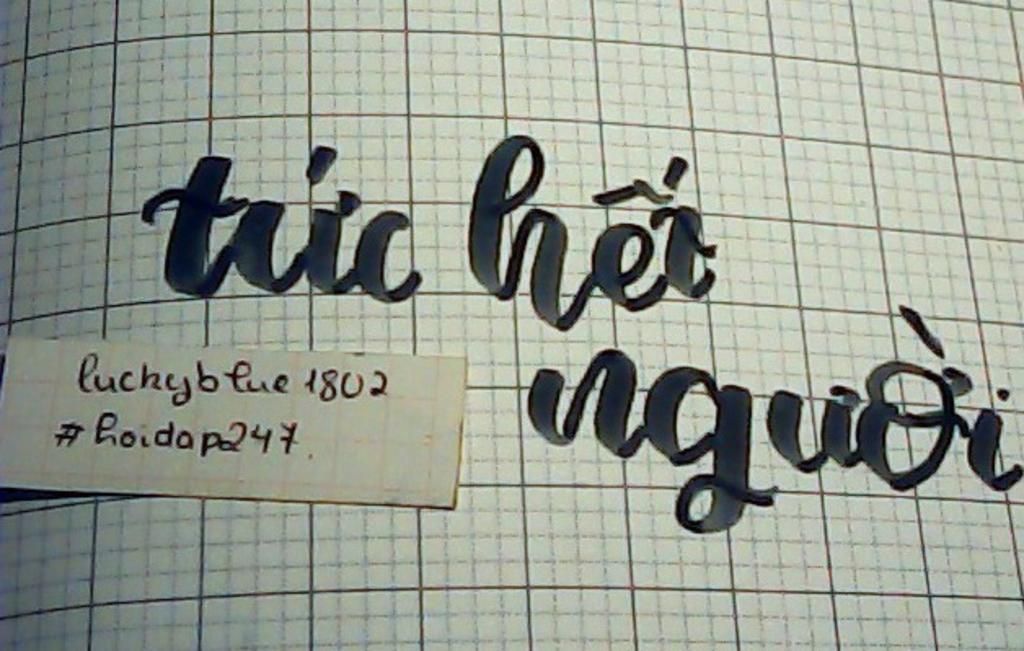 tức hết
người
luckyblue 1802
#hoidap247.